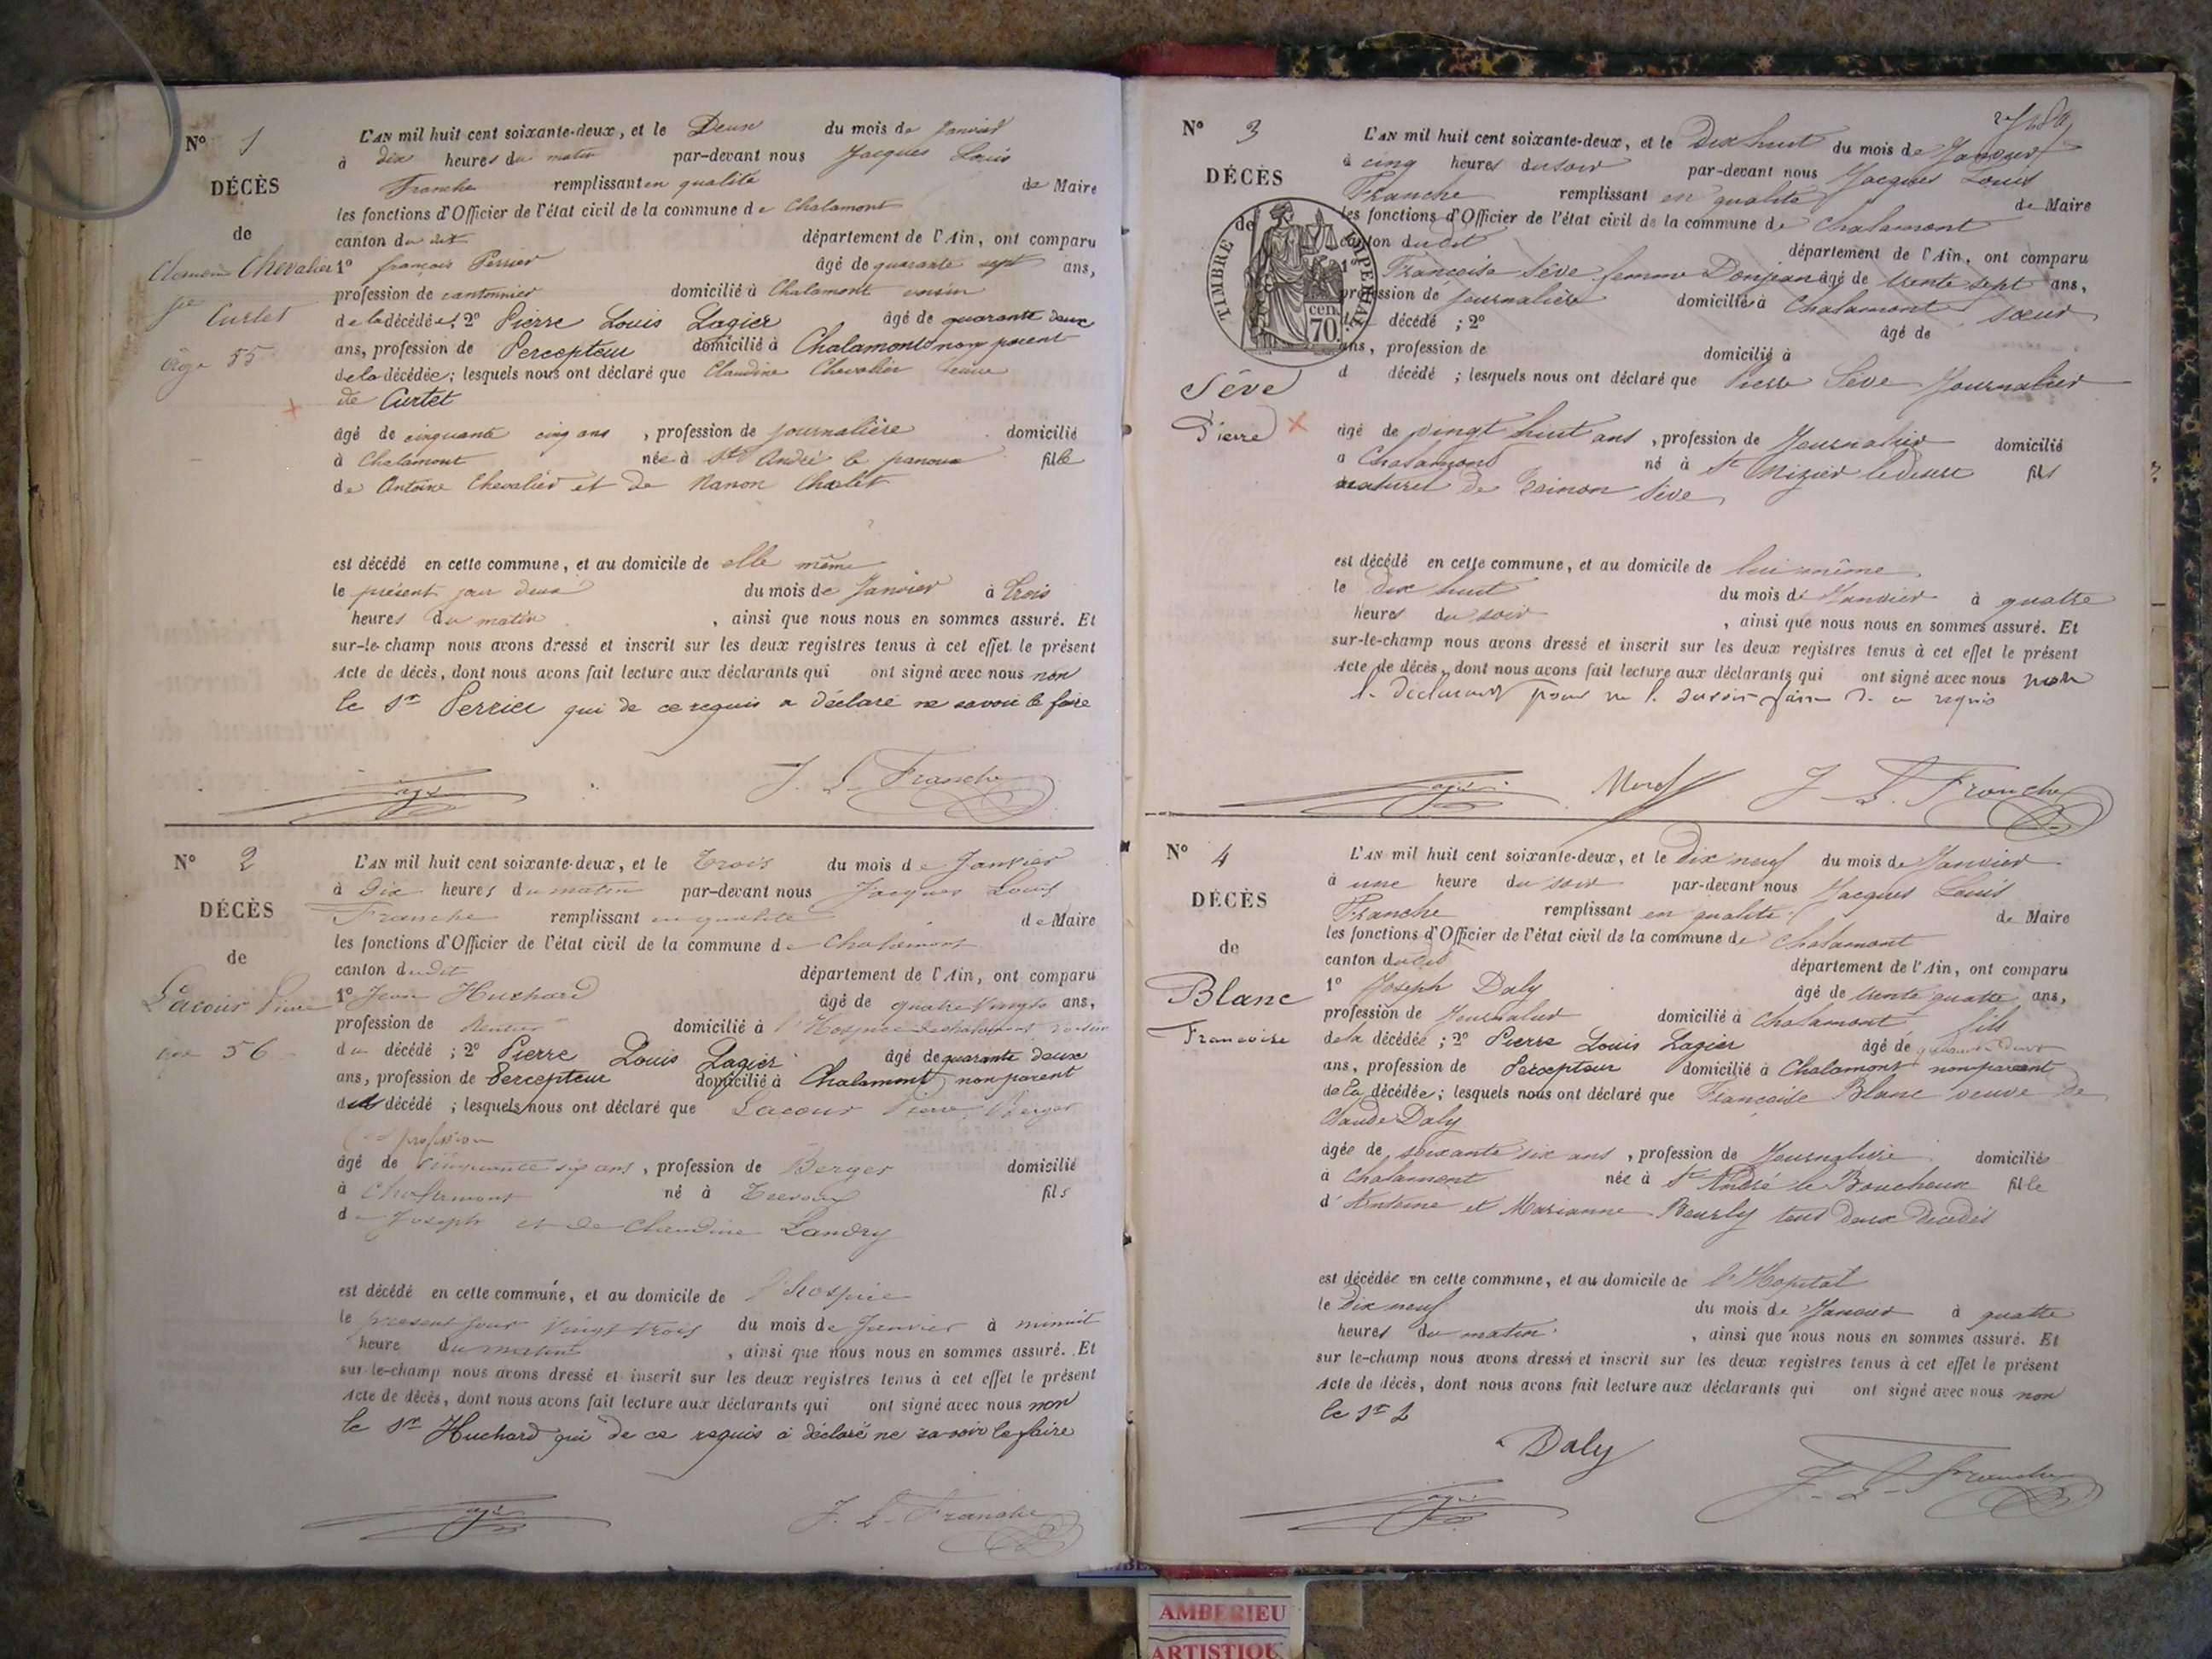 N° 1
DÉCÈS
de
Chevalier
Curtet
âge 55
L'AN mil huit cent soixante-deux, et le Deux du mois de Janvier
à dix heures du matin par-devant nous Jacques Louis
Franche remplissant en qualité de Maire
les fonctions d'Officier de l'état civil de la commune de Chalamont
canton du dit département de l'Ain, ont comparu
1° françois Perrier âgé de quarante sept ans,
profession de cantonnier domicilié à Chalamont voisin
de la décédée; 2° Pierre Louis Lagier âgé de quarante deux
ans, profession de Percepteur domicilié à Chalamont non parent
de la décédée; lesquels nous ont déclaré que Claudine Chevalier veuve
de Curtet
âgé de cinquante cinq ans, profession de journalière domicilié
à Chalamont née à St André le panoux fille
de Antoine Chevalier et de Nanon Chalet
est décédé en cette commune, et au domicile de elle même
le présent jour deux du mois de Janvier à trois
heures du matin, ainsi que nous nous en sommes assuré. Et
sur-le-champ nous avons dressé et inscrit sur les deux registres tenus à cet effet le présent
Acte de décès, dont nous avons fait lecture aux déclarants qui ont signé avec nous non
le Sr Perrier qui de ce requis a déclaré ne savoir le faire
J. L. Franche
N° 2
DÉCÈS
de
Lacour Pierre
âge 56
L'AN mil huit cent soixante-deux, et le Trois du mois de Janvier
à Dix heures du matin par-devant nous Jacques Louis
Franche remplissant en qualité de Maire
les fonctions d'Officier de l'état civil de la commune de Chalamont
canton du dit département de l'Ain, ont comparu
1° Jean Huchard âgé de quatre vingts ans,
profession de Rentier domicilié à l'Hospice de chalamont voisin
du décédé; 2° Pierre Louis Lagier âgé de quarante deux
ans, profession de Percepteur domicilié à Chalamont, non parent
du décédé; lesquels nous ont déclaré que Lacour Pierre Berger
profession
âgé de cinquante six ans, profession de Berger domicilié
à Chalamont né à Trevoux fils
de Joseph et de Claudine Landry
est décédé en cette commune, et au domicile de l'hospice
le present jour vingt trois du mois de Janvier à minuit
heure du matin, ainsi que nous nous en sommes assuré. Et
sur-le-champ nous avons dressé et inscrit sur les deux registres tenus à cet effet le présent
Acte de décès, dont nous avons fait lecture aux déclarants qui ont signé avec nous non
le Sr Huchard qui de ce requis a déclaré ne savoir le faire
J. L. Franche
N° 3
DÉCÈS
de
TIMBRE IMPERIAL
70 cen.
Sève
Pierre
L'AN mil huit cent soixante-deux, et le Dix huit du mois de Janvier
à cinq heures du soir par-devant nous Jacques Louis
Franche remplissant en qualité de Maire
les fonctions d'Officier de l'état civil de la commune de Chalamont
canton du dit département de l'Ain, ont comparu
1° Françoise Sève femme Donjean âgé de trente sept ans,
profession de journalière domicilié à Chalamont, sœur
décédé; 2° âgé de
ans, profession de domicilié à
d décédé; lesquels nous ont déclaré que Pierre Sève Journalier
âgé de vingt huit ans, profession de Journalier domicilié
à Chalamont né à St Nizier le desert fils
naturel de Sève
est décédé en cette commune, et au domicile de lui même
le dix huit du mois de Janvier à quatre
heures du soir, ainsi que nous nous en sommes assuré. Et
sur-le-champ nous avons dressé et inscrit sur les deux registres tenus à cet effet le présent
Acte de décès, dont nous avons fait lecture aux déclarants qui ont signé avec nous non
le déclarant pour ne le savoir faire de ce requis
J. L. Franche
N° 4
DÉCÈS
de
Blanc
Francoise
L'AN mil huit cent soixante-deux, et le Dix neuf du mois de Janvier
à une heure du soir par-devant nous Jacques Louis
Franche remplissant en qualité de Maire
les fonctions d'Officier de l'état civil de la commune de Chalamont
canton du dit département de l'Ain, ont comparu
1° Joseph Daly âgé de trente quatre ans,
profession de Journalier domicilié à Chalamont, fils
de la décédée; 2° Pierre Louis Lagier âgé de quarante deux
ans, profession de Percepteur domicilié à Chalamont non parent
de la décédée; lesquels nous ont déclaré que Francoise Blanc veuve de
Claude Daly
âgée de soixante six ans, profession de Journalière domicilié
à Chalamont née à St André le Boucheux fille
d'Antoine et Marianne Beurly tous deux décédés
est décédée en cette commune, et au domicile de l'Hopital
le Dix neuf du mois de Janvier à quatre
heures du matin, ainsi que nous nous en sommes assuré. Et
sur le-champ nous avons dressé et inscrit sur les deux registres tenus à cet effet le présent
Acte de décès, dont nous avons fait lecture aux déclarants qui ont signé avec nous non
le Sr L
Daly
J. L. Franche
AMBERIEU
ARTISTIQU